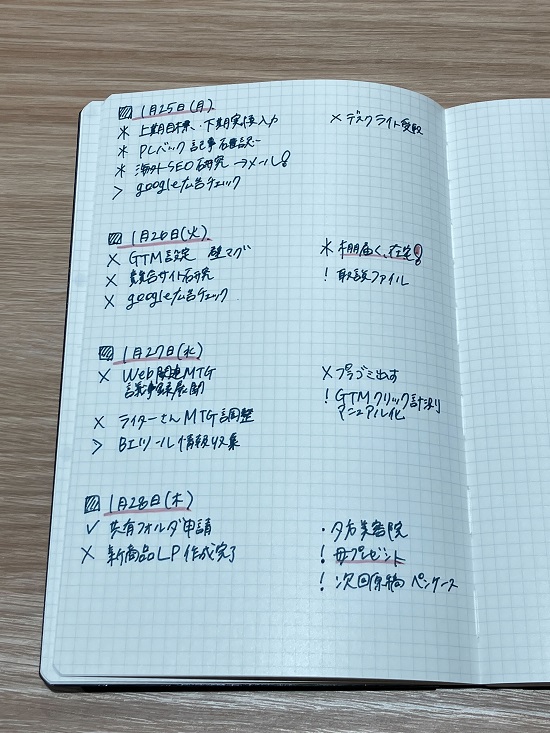 1月25日(月)
× 上期目標、下期実績入力
× PCバック記事確認
× 海外SEO研究→メール!
> google広告チェック
× デスクライト受取
1月26日(火)
× GTM設定 壁マグ
× 競合サイト研究
× google広告チェック
× 棚届く、在宅!
! 取説ファイル
1月27日(水)
× Web関連MTG
議事録展開
× ライターさんMTG調整
> BIツール情報収集
× プラゴミ出す
! GTMクリック計測
マニュアル化
1月28日(木)
✓ 共有フォルダ申請
× 新商品LP作成完了
・夕方美容院
! 母プレゼント
! 次回原稿 ペンケース